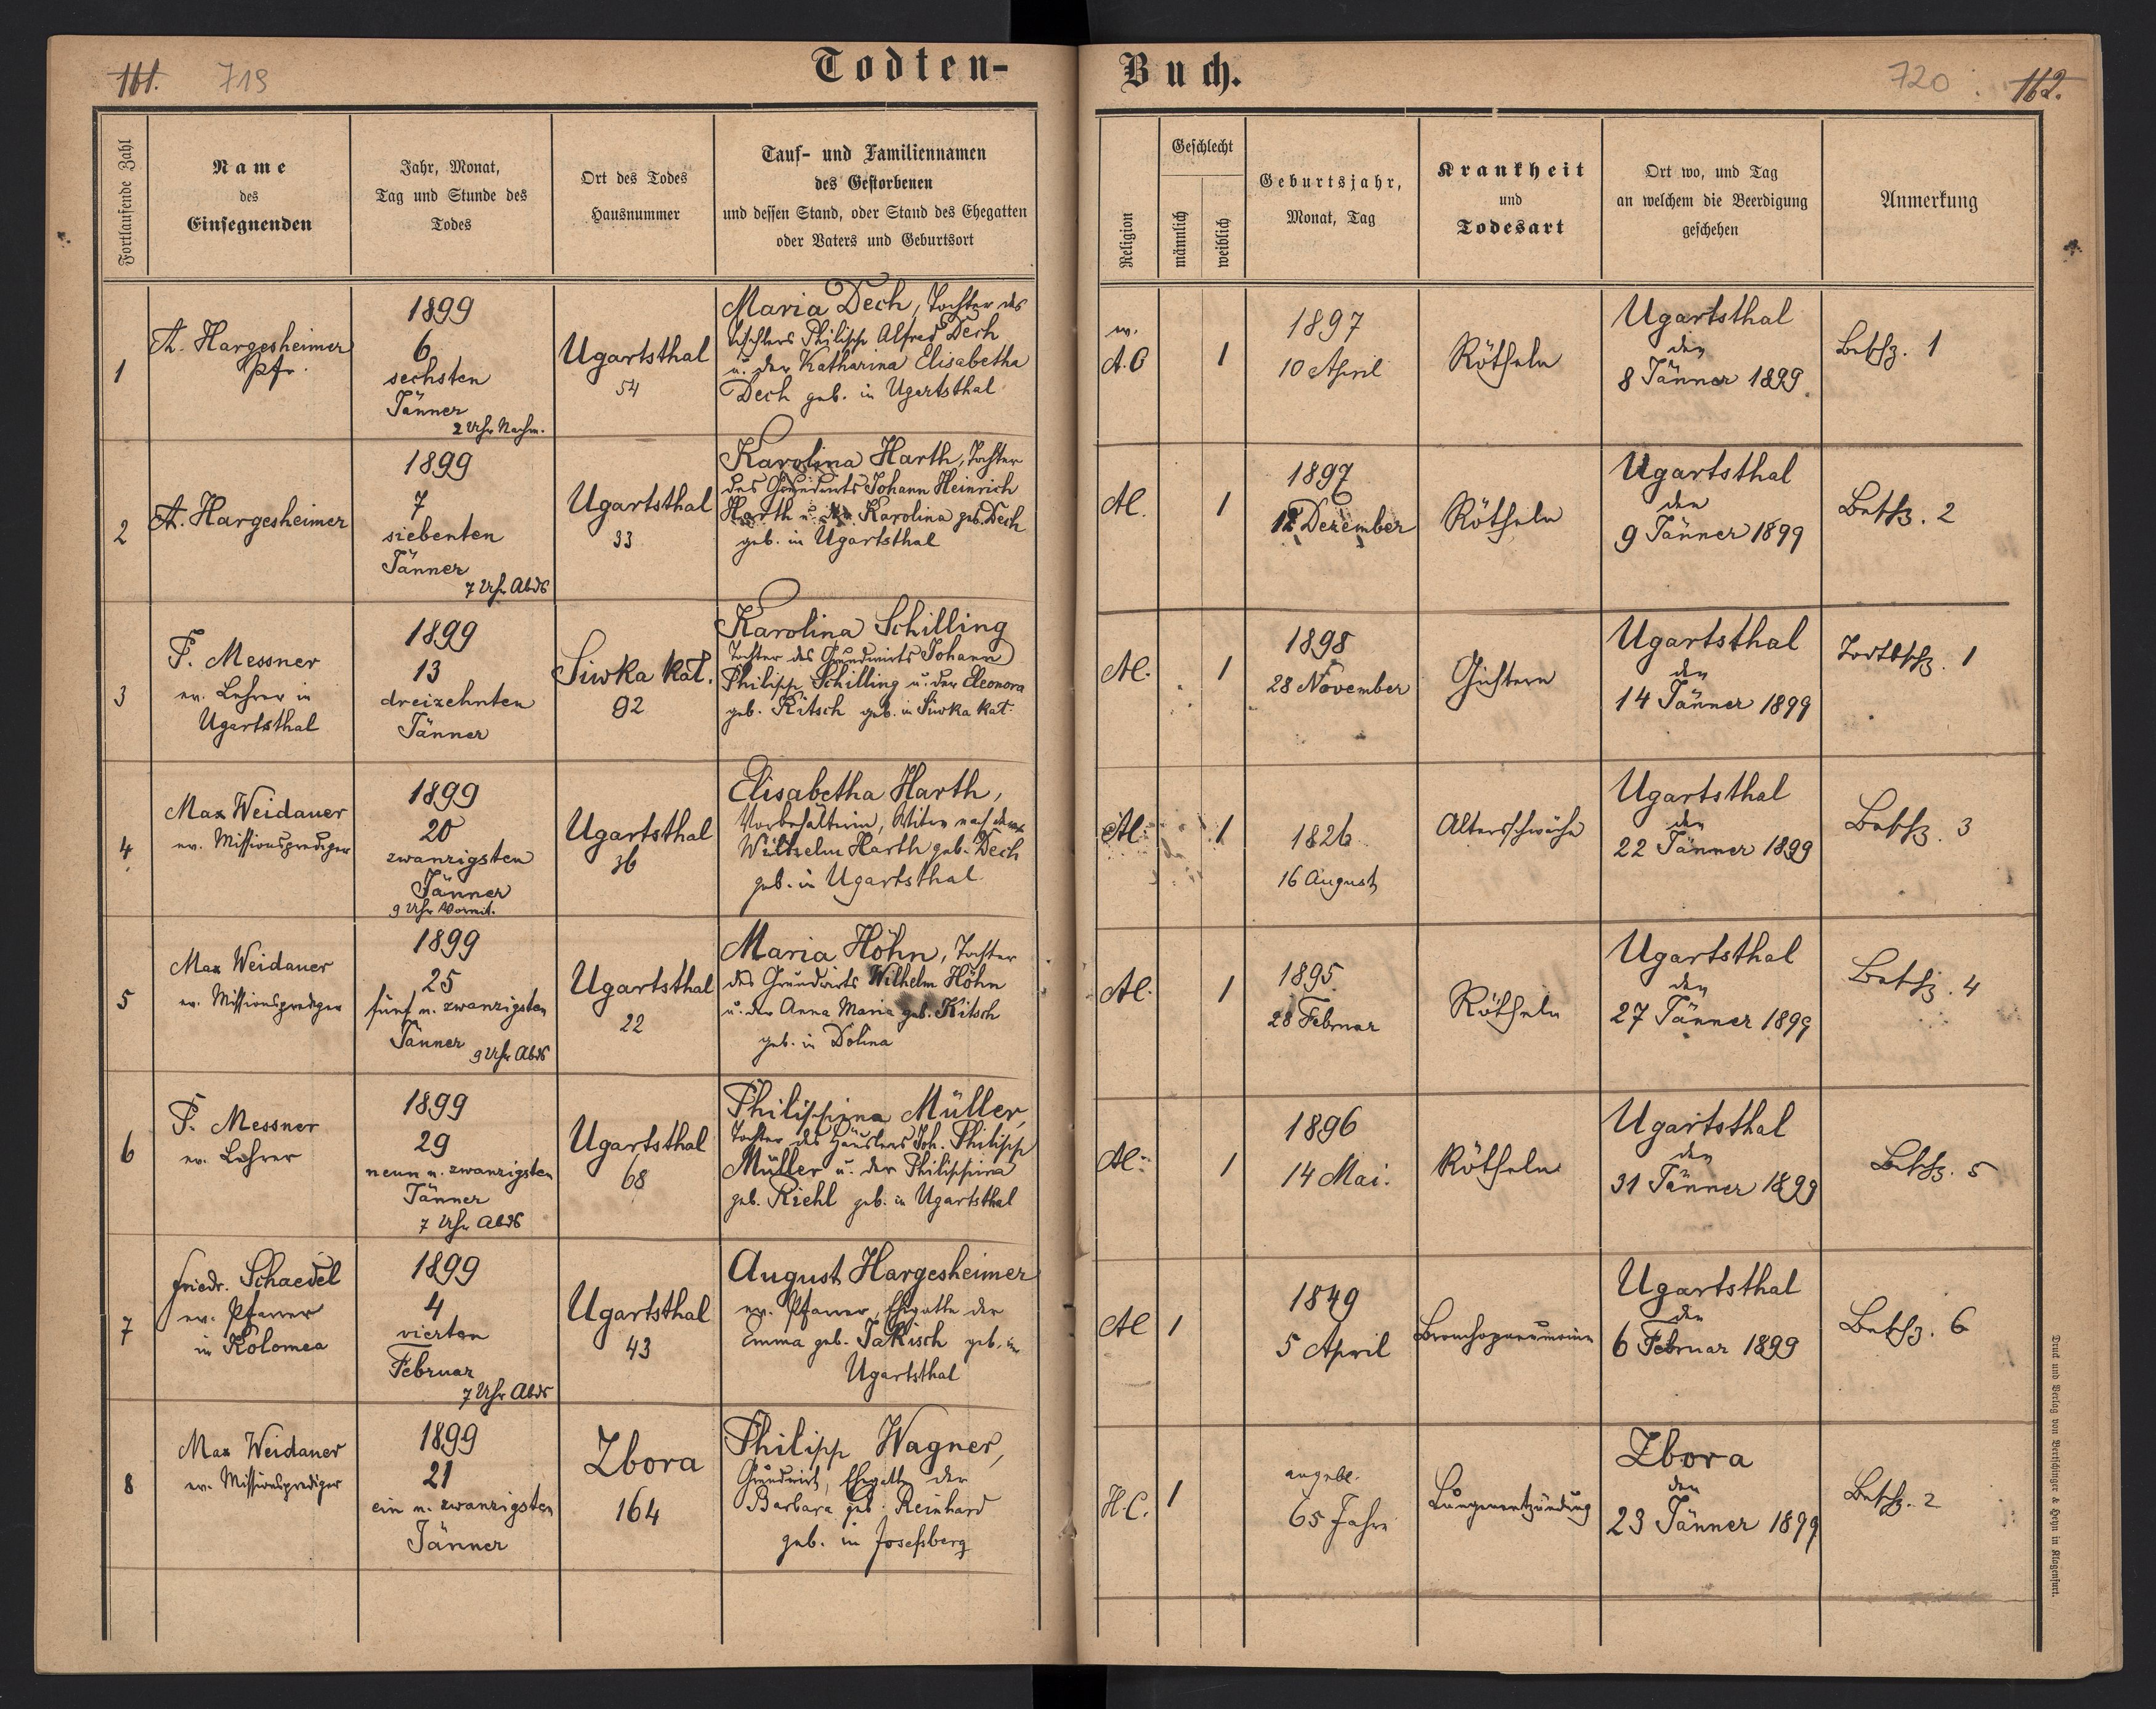 161. 719
Todten-
Fortlaufende Zahl
Name
des
Einsegnenden
Jahr, Monat,
Tag und Stunde des
Todes
Ort des Todes
Hausnummer
Tauf- und Familiennamen
des Gestorbenen
und dessen Stand, oder Stand des Ehegatten
oder Vaters und Geburtsort
1
A. Hargesheimer
Pfr.
1899
6
sechsten
Jänner
2 Uhr Nachm.
Ugartsthal
54
Maria Dech, Tochter des
Tischlers Philipp Alfred Dech
u. der Katharina Elisabetha
Dech geb. in Ugartsthal
2
A. Hargesheimer
1899
7
siebenten
Jänner
7 Uhr Abds
Ugartsthal
33
Karolina Harth, Tochter
des Grundwirts Johann Heinrich
Harth u. der Karolina geb. Dech
geb. in Ugartsthal
3
F. Messner
ev. Lehrer in
Ugartsthal
1899
13
dreizehnten
Jänner
Siwka kat.
92
Karolina Schilling
Tochter des Grundwirts Johann
Philipp Schilling u. der Eleonora
geb. Kitsch geb. in Siwka kat.
4
Max Weidauer
ev. Missionsprediger
1899
20
zwanzigsten
Jänner
9 Uhr Vormit.
Ugartsthal
36
Elisabetha Harth,
Vorbehälterin, Witwe nach dem
Wilhelm Harth geb. Dech
geb. in Ugartsthal
5
Max Weidauer
ev. Missionsprediger
1899
25
fünf u. zwanzigsten
Jänner
9 Uhr Abds
Ugartsthal
22
Maria Höhn, Tochter
des Grundwirts Wilhelm Höhn
u. der Anna Maria geb. Kitsch
geb. in Dolina
6
F. Messner
ev. Lehrer
1899
29
neun u. zwanzigsten
Jänner
7 Uhr Abds
Ugartsthal
68
Philippina Müller,
Tochter des Häuslers Joh. Philipp
Müller u. der Philippina
geb. Riehl geb. in Ugartsthal
7
Friedr. Schaedel
ev. Pfarrer
in Kolomea
1899
4
vierten
Februar
7 Uhr Abds
Ugartsthal
43
August Hargesheimer
ev. Pfarrer, Ehegatte der
Emma geb. Jakisch geb. in
Ugartsthal
8
Max Weidauer
ev. Missionsprediger
1899
21
ein u. zwanzigsten
Jänner
Zbora
164
Philipp Wagner,
Grundwirt, Ehegatte der
Barbara geb. Reinhard
geb. in Josefsberg
Buch.
720 162.
Religion
Geschlecht
männlich
weiblich
Geburtsjahr,
Monat, Tag
Krankheit
und
Todesart
Ort wo, und Tag
an welchem die Beerdigung
geschehen
Anmerkung
ev.
A.C
1
1897
10 April
Rötheln
Ugartsthal
den
8 Jänner 1899.
Betsch. 1
Al.
1
1897
12 Dezember
Rötheln
Ugartsthal
den
9 Jänner 1899
Betsch. 2
Al.
1
1898
28 November
Gichtern
Ugartsthal
den
14 Jänner 1899
1
Al.
1
1826
16 August
Altersschwäche
Ugartsthal
den
22 Jänner 1899
Betsch. 3
Al.
1
1895
28 Februar
Rötheln
Ugartsthal
den
27 Jänner 1899
Betsch. 4
Al.
1
1896
14 Mai.
Rötheln
Ugartsthal
den
31 Jänner 1899
Betsch. 5
Al
1
1849
5 April
Bronchopneumonie
Ugartsthal
den
6 Februar 1899
Betsch. 6
H.C.
1
angebl.
65 Jahre
Lungenentzündung
Zbora
den
23 Jänner 1899
Betsch. 2
Druck und Verlag von Bertschinger & Heyn in Klagenfurt.